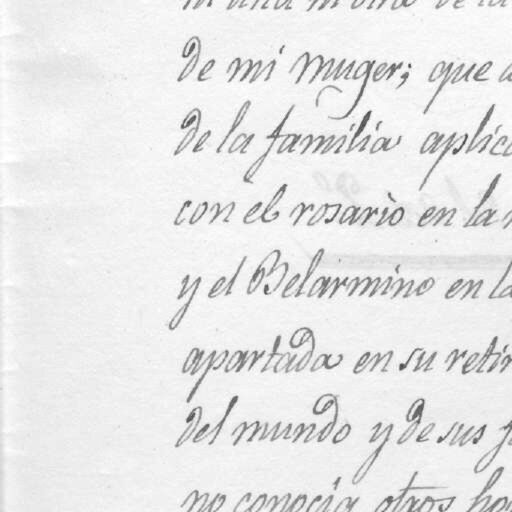 de mi muger; que
de la familia aplic
con el rosario en la
y el Belarmino en la
apartada en su retir
del mundo y de sus
no conocia otros ho